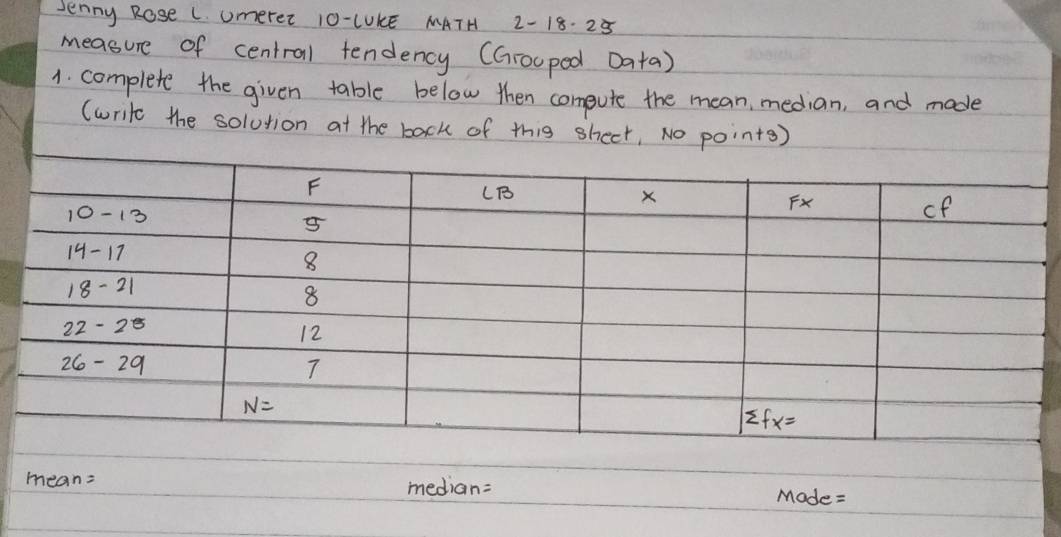 Jenny Rose L. Umerez 10-LUKE MATH 2-18-25
measure of central tendency (Grouped Data)
1. complete the given table below then compute the mean, median, and mode
(write the solution at the back of this sheet, No points)
F LB x Fx cf
10-13 5
14-17 8
18-21 8
22-25 12
26-29 7
N= Σfx=
mean= median= Mode=